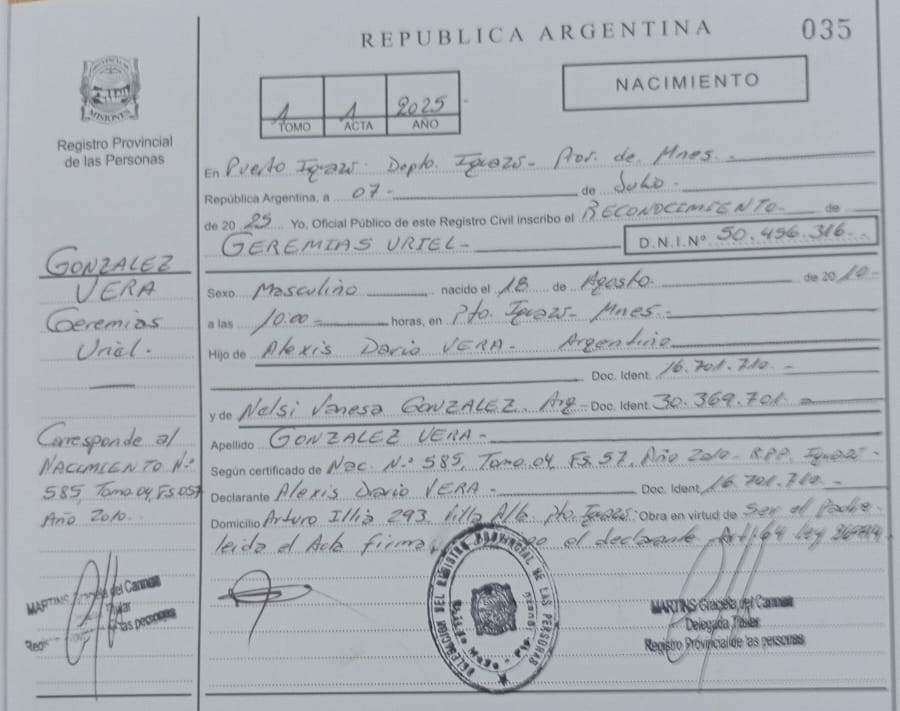 REPUBLICA ARGENTINA
035
Registro Provincial
de las Personas
1 1 2025
TOMO ACTA AÑO
NACIMIENTO
En Puerto Iguazú Depto. Iguazú - Prov. de Mnes.
República Argentina, a 07 - de Julio -
de 20 25 Yo, Oficial Público de este Registro Civil inscribo el RECONOCIMIENTO de
GEREMIAS URIEL - D.N.I.Nº 50.456.316 -
Sexo Masculino nacido el 18 de Agosto. de 20 10 -
a las 10:00 horas, en Pto. Iguazú - Mnes. -
Hijo de Alexis Dario VERA - Argentino
Doc. Ident. 16.701.710. -
y de Nelsi Vanesa GONZALEZ. Arg - Doc. Ident. 30.369.701. -
Apellido GONZALEZ VERA -
Según certificado de Nac. N.º 585, Tomo 04 FS. 57, Año 2010 - R.P.P. Iguazú -
Declarante Alexis Dario VERA - Doc. Ident. 16.701.710. -
Domicilio Arturo Illia 293 Villa Alta Pto. Iguazú. Obra en virtud de Ser el Padre
leida el Acta firma el declarante Art. 64 ley
GONZALEZ
VERA
Geremias
Uriel.
Corresponde al
NACIMIENTO N.º
585, Tomo 04 FS 057
Año 2010.
MARTINS Graciela del Carmen
Delegada Titular
Registro Provincial de las personas